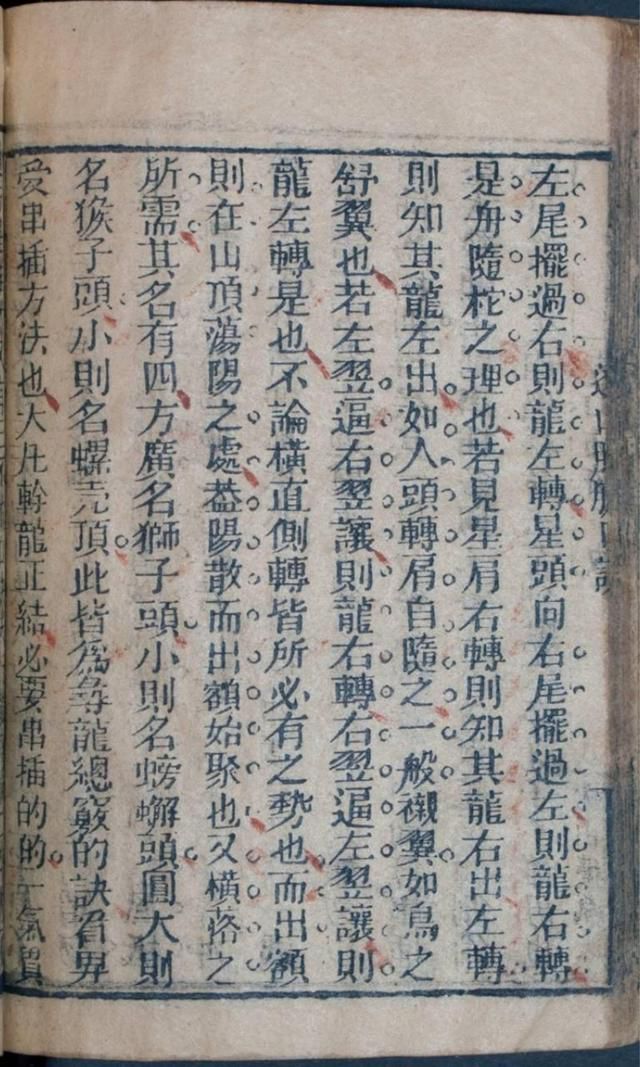 左尾擺過右則龍左轉星頭向右尾擺過左則龍右轉
是舟隨柁之理也若見星肩右轉則知其龍右出左轉
則知其龍左出如人頭轉肩自隨之一般襯翼如鳥之
舒翼也若左翌逼右翌讓則龍右轉右翌逼左翌讓則
龍左轉是也不論橫直側轉皆所必有之勢也而出額
則在山頂蕩陽之處葢陽散而出額始聚也又橫落之
所需其名有四方廣名獅子頭小則名螃蠏頭圓大則
名猴子頭小則名螺壳頂此皆爲尋龍總竅的訣看界
受串插方法也大凡幹龍正結必要串插的的一氣貫